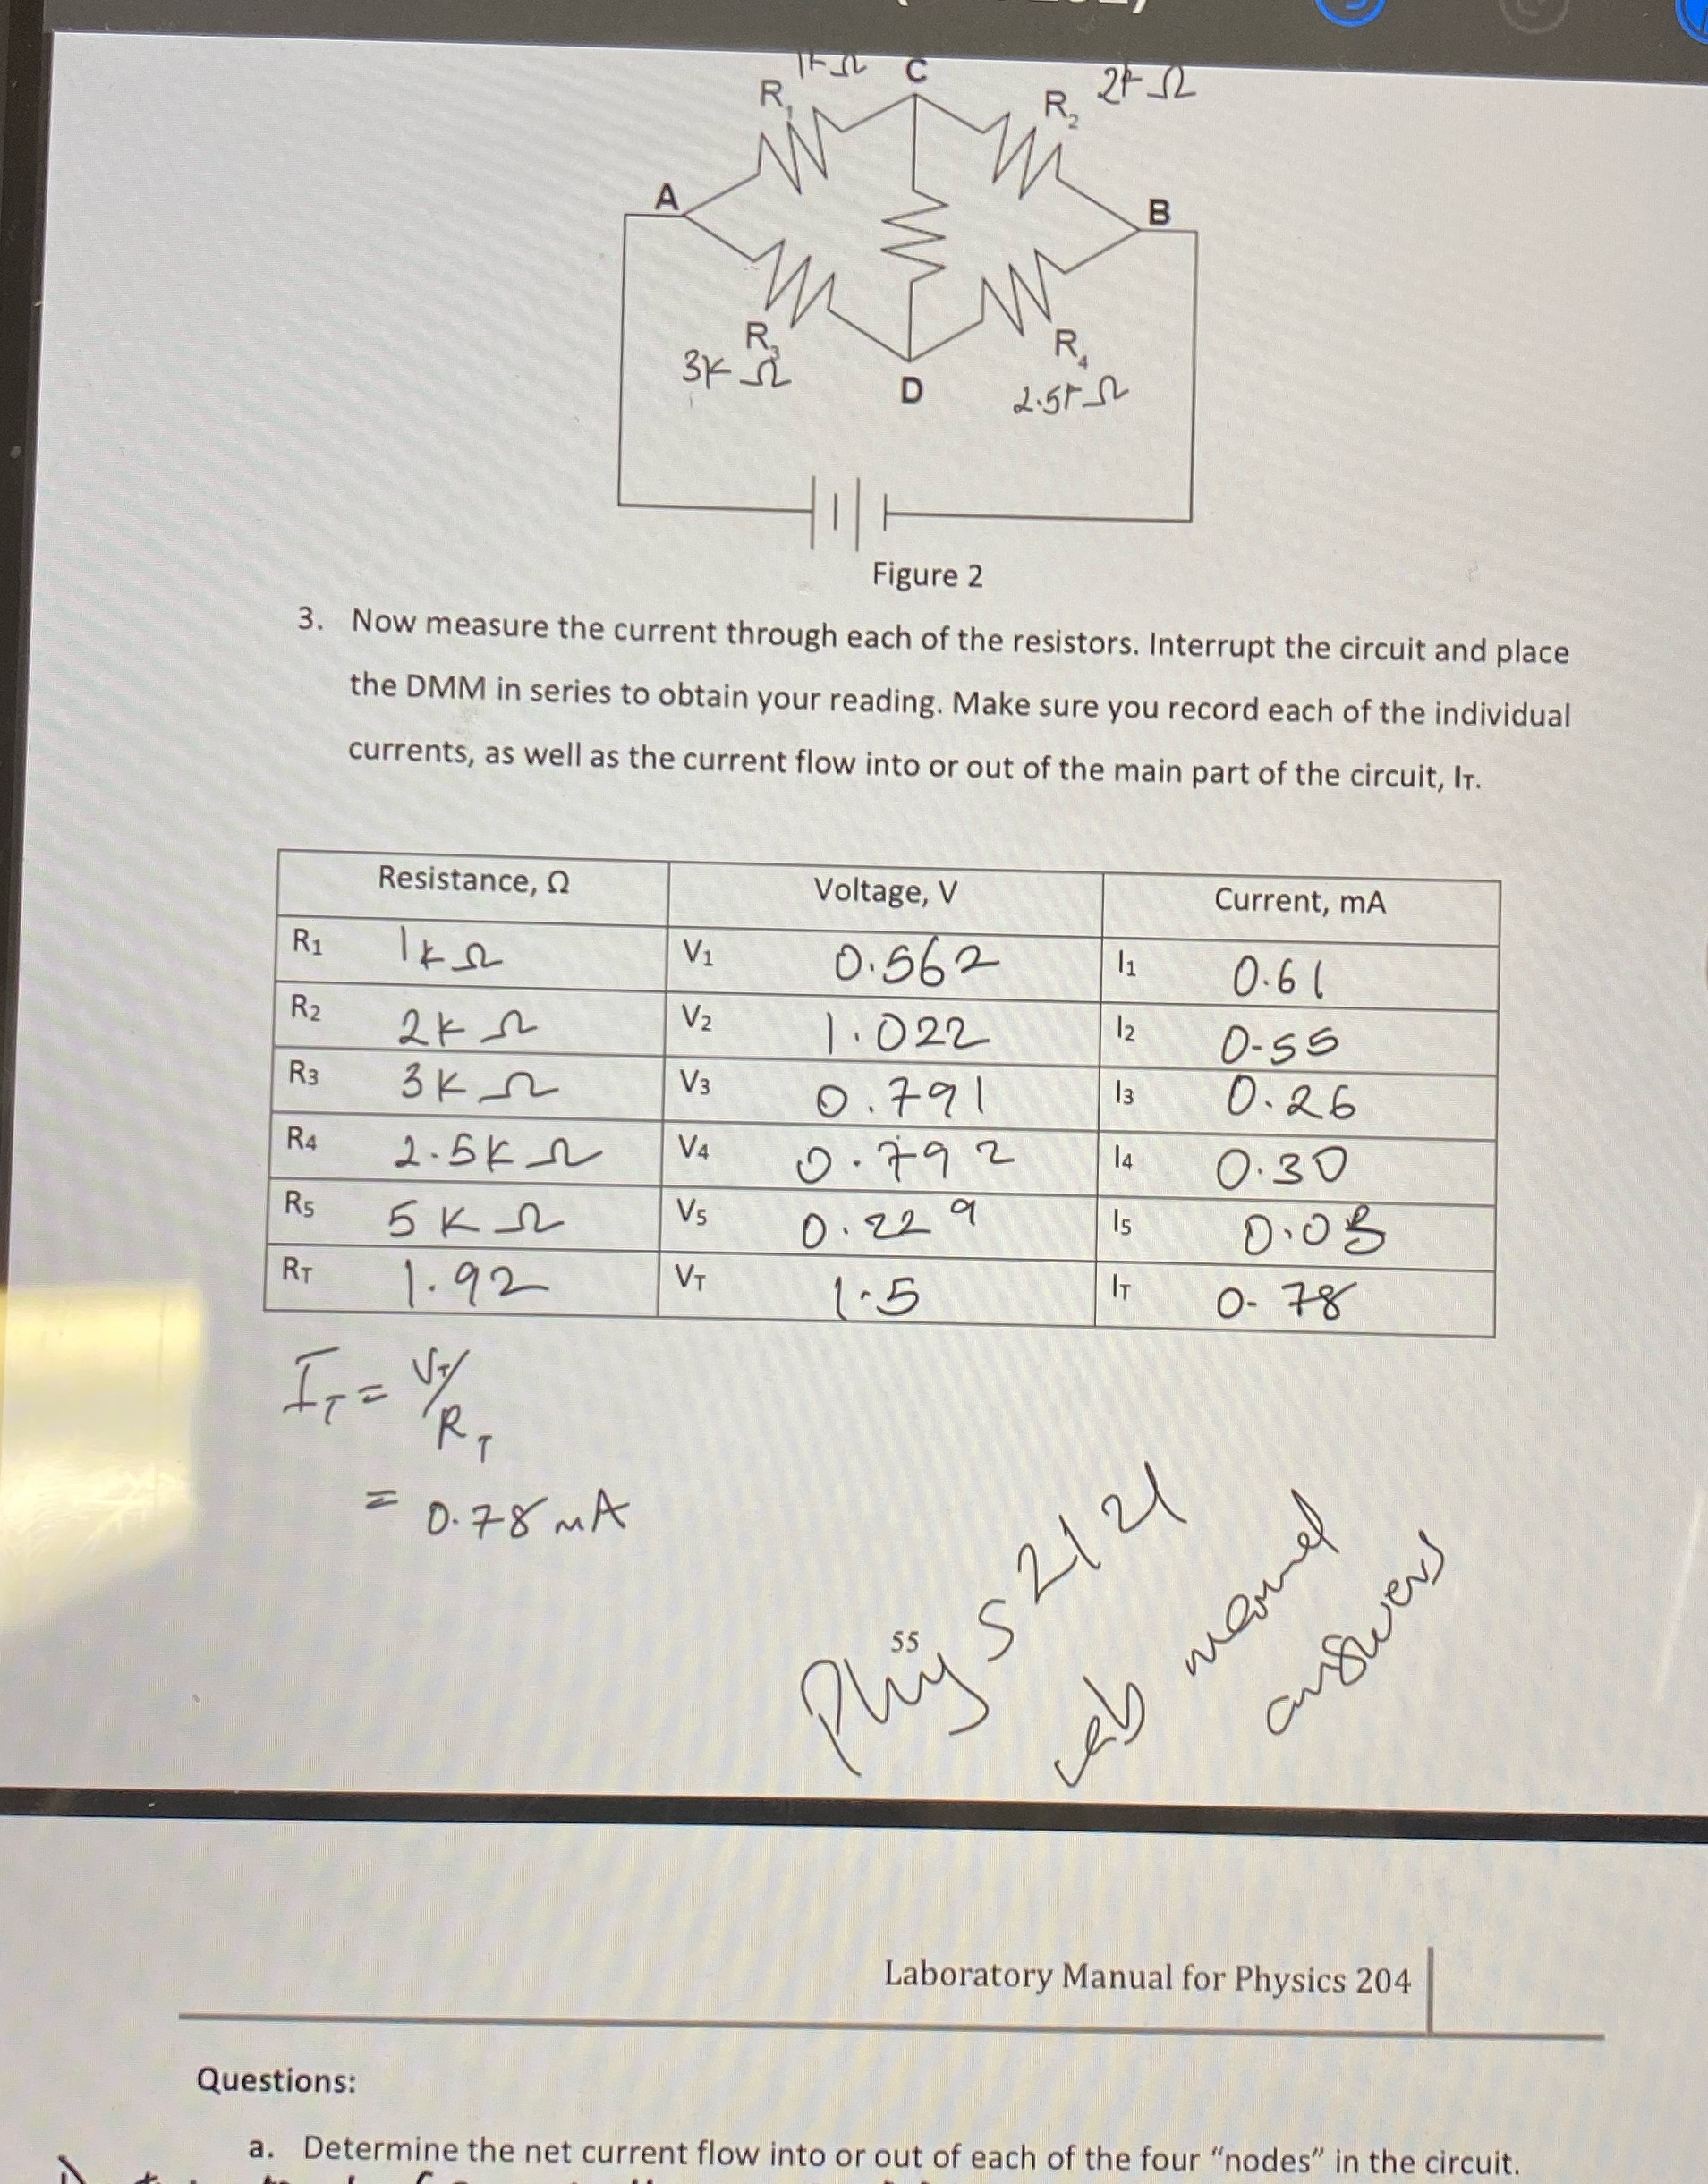 1kΩ C 2kΩ
R1 R2
A B
R3 R4
3kΩ D 2.5kΩ
Figure 2
3. Now measure the current through each of the resistors. Interrupt the circuit and place
the DMM in series to obtain your reading. Make sure you record each of the individual
currents, as well as the current flow into or out of the main part of the circuit, IT.
Resistance, Ω Voltage, V Current, mA
R1 1kΩ V1 0.562 I1 0.61
R2 2kΩ V2 1.022 I2 0.55
R3 3kΩ V3 0.791 I3 0.26
R4 2.5kΩ V4 0.792 I4 0.30
R5 5kΩ V5 0.229 I5
RT 1.92 VT 1.5 IT 0.78
IT = VT/RT
= 0.78 mA
55
Phys 2121
Lab manual
answers
Laboratory Manual for Physics 204
Questions:
a. Determine the net current flow into or out of each of the four “nodes” in the circuit.